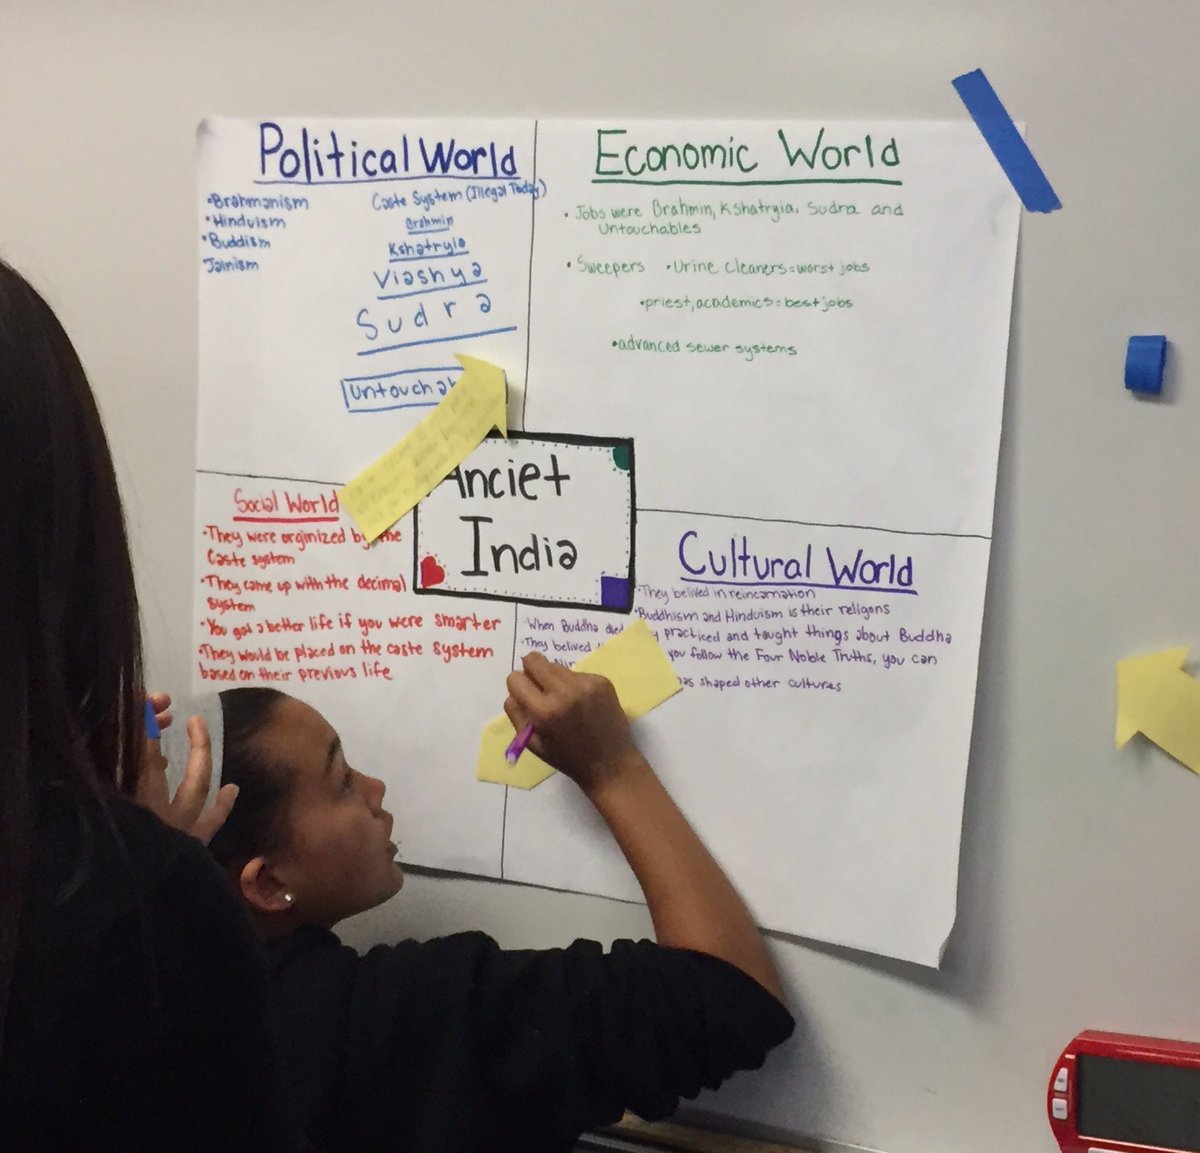 Political World
•Brahmanism
•Hinduism
•Buddism
Jainism
Caste System (Illegal Today)
Brahmin
Kshatryia
Viashya
Sudra
Economic World
• Jobs were Brahmin, Kshatryia, Sudra and
Untouchables
• Sweepers •Urine cleaners=worst jobs
•priest,academics=best jobs
•advanced sewer systems
Anciet
India
Social World
•They were orginized by the
Caste system
•They came up with the decimal
system
•You got a better life if you were smarter
•They would be placed on the caste system
based on their previous life
Cultural World
•They belived in reincarnation
•Buddhism and Hinduism is their religons
•When Buddha died practiced and taught things about Buddha
•They belived you follow the Four Noble Truths, you can
shaped other cultures